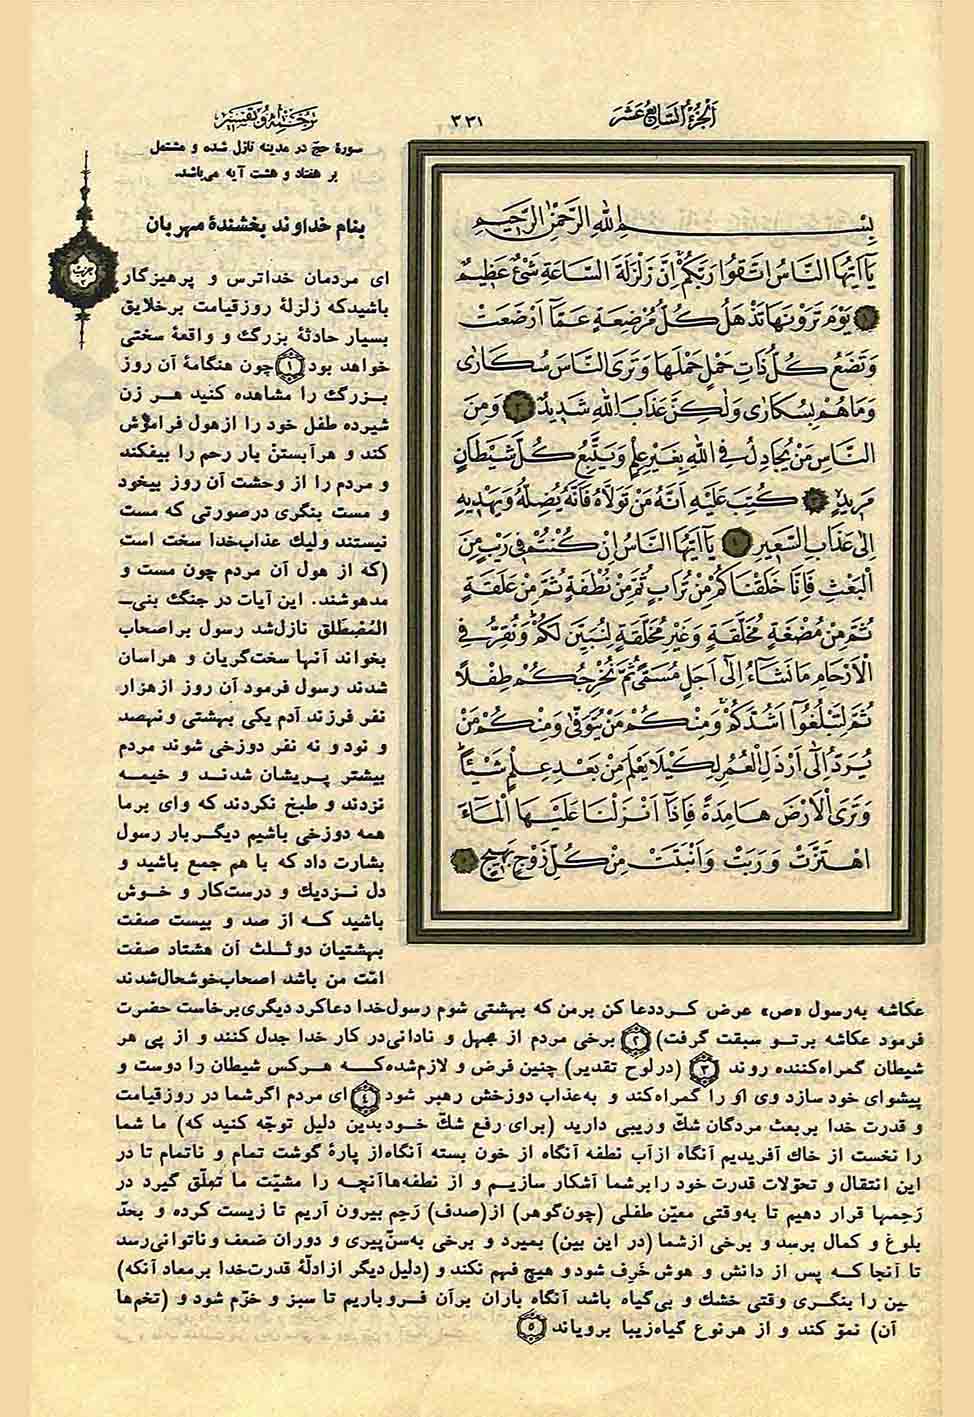 اَلْجُزْءُ السَّابِعُ عَشَرَ
٣٣١
ترجمه و تفسیر
بِسْمِ اللهِ الرَّحْمٰنِ الرَّحِيمِ
يَا اَيُّهَا النَّاسُ اتَّقُوا رَبَّكُمْ اِنَّ زَلْزَلَةَ السَّاعَةِ شَيْءٌ عَظِيمٌ
١ يَوْمَ تَرَوْنَهَا تَذْهَلُ كُلُّ مُرْضِعَةٍ عَمَّا اَرْضَعَتْ
وَتَضَعُ كُلُّ ذَاتِ حَمْلٍ حَمْلَهَا وَتَرَى النَّاسَ سُكَارٰى
وَمَا هُمْ بِسُكَارٰى وَلٰكِنَّ عَذَابَ اللهِ شَدِيدٌ ٢ وَمِنَ
النَّاسِ مَنْ يُجَادِلُ فِى اللهِ بِغَيْرِ عِلْمٍ وَيَتَّبِعُ كُلَّ شَيْطَانٍ
مَرِيدٍ ٣ كُتِبَ عَلَيْهِ اَنَّهُ مَنْ تَوَلَّاهُ فَاَنَّهُ يُضِلُّهُ وَيَهْدِيهِ
اِلٰى عَذَابِ السَّعِيرِ ٤ يَا اَيُّهَا النَّاسُ اِنْ كُنْتُمْ فِى رَيْبٍ مِنَ
الْبَعْثِ فَاِنَّا خَلَقْنَاكُمْ مِنْ تُرَابٍ ثُمَّ مِنْ نُطْفَةٍ ثُمَّ مِنْ عَلَقَةٍ
ثُمَّ مِنْ مُضْغَةٍ مُخَلَّقَةٍ وَغَيْرِ مُخَلَّقَةٍ لِنُبَيِّنَ لَكُمْ وَنُقِرُّ فِى
الْاَرْحَامِ مَا نَشَاءُ اِلٰى اَجَلٍ مُسَمًّى ثُمَّ نُخْرِجُكُمْ طِفْلًا
ثُمَّ لِتَبْلُغُوا اَشُدَّكُمْ وَمِنْكُمْ مَنْ يُتَوَفّٰى وَمِنْكُمْ مَنْ
يُرَدُّ اِلٰى اَرْذَلِ الْعُمُرِ لِكَيْلَا يَعْلَمَ مِنْ بَعْدِ عِلْمٍ شَيْئًا
وَتَرَى الْاَرْضَ هَامِدَةً فَاِذَا اَنْزَلْنَا عَلَيْهَا الْمَاءَ
اهْتَزَّتْ وَرَبَتْ وَاَنْبَتَتْ مِنْ كُلِّ زَوْجٍ بَهِيجٍ ٥
سورهٔ حجّ در مدینه نازل شده و مشتمل
بر هفتاد و هشت آیه می‌باشد.
بنام خداوند بخشندهٔ مهربان
ای مردمان خداترس و پرهیزگار
باشیدکه زلزلهٔ روزقیامت برخلایق
بسیار حادثهٔ بزرگ و واقعهٔ سختی
خواهد بود ١ چون هنگامهٔ آن روز
بزرگ را مشاهده کنید هر زن
شیرده طفل خود را ازهول فراموش
کند و هرآبستن بار رحم را بیفکند
و مردم را از وحشت آن روز بیخود
و مست بنگری درصورتی که مست
نیستند ولیك عذاب‌خدا سخت است
(که از هول آن مردم چون مست و
مدهوشند. این آیات در جنگ بنی‌ـ
المُصْطَلق نازل‌شد رسول براصحاب
بخواند آنها سخت‌گریان و هراسان
شدند رسول فرمود آن روز ازهزار
نفر فرزند آدم یکی بهشتی و نهصد
و نود و نه نفر دوزخی شوند مردم
بیشتر پریشان شدند و خیمه
نزدند و طبخ نکردند که وای برما
همه دوزخی باشیم دیگربار رسول
بشارت داد که با هم جمع باشید و
دل نزدیك و درست‌کار و خوش
باشید که از صد و بیست صفت
بهشتیان دوثلث آن هشتاد صفت
امّت من باشد اصحاب‌خوشحال‌شدند
عکاشه به‌رسول «ص» عرض کرددعا کن برمن که بهشتی شوم رسول‌خدا دعاکرد دیگری برخاست حضرت
فرمود عکاشه برتو سبقت گرفت) ٢ برخی مردم از جهل و نادانی‌در کار خدا جدل کنند و از پی هر
شیطان گمراه‌کننده روند ٣ (درلوح تقدیر) چنین فرض و لازم‌شده‌که هرکس شیطان را دوست و
پیشوای خود سازد وی او را گمراه‌کند و به‌عذاب دوزخش رهبر شود ٤ ای مردم اگرشما در روزقیامت
و قدرت خدا بربعث مردگان شكّ وریبی دارید (برای رفع شكّ خودبدین دلیل توجّه کنید که) ما شما
را نخست از خاك آفریدیم آنگاه ازآب نطفه آنگاه از خون بسته آنگاه‌از پارهٔ گوشت تمام و ناتمام تا در
این انتقال و تحوّلات قدرت خود رابرشما آشکار سازیم و از نطفه‌هاآنچه را مشیّت ما تعلّق گیرد در
رَحِمها قرار دهیم تا به‌وقتی معیّن طفلی (چون‌گوهر) از(صدف) رَحِم بیرون آریم تا زیست کرده و بحدّ
بلوغ و کمال برسد و برخی ازشما (در این بین) بمیرد و برخی به‌سنّ‌پیری و دوران ضعف وناتوانی‌رسد
تا آنجا که پس از دانش و هوش خَرِف شود و هیچ فهم نکند و (دلیل دیگر ازادلّهٔ قدرت‌خدا برمعاد آنکه)
ین را بنگری وقتی خشك و بی‌گیاه باشد آنگاه باران برآن فروباریم تا سبز و خرّم شود و (تخم‌ها
آن) نموّ کند و از هرنوع گیاه‌زیبا برویاند ٥